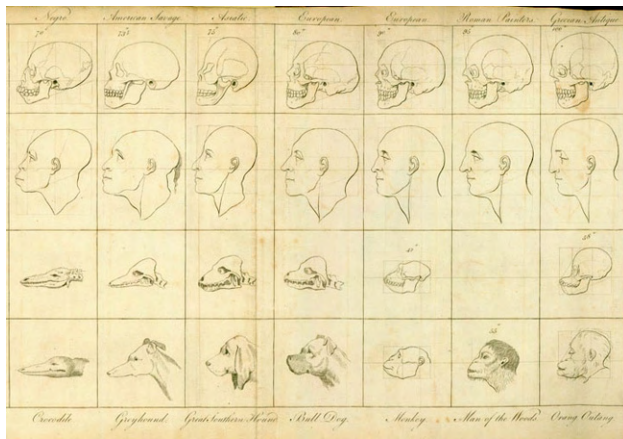 Negro American Savage Asiatic European European Roman Painters Grecian Antique
70 75 75 80 90 95 100
42 58
55
Crocodile Greyhound Great Southern Hound Bull Dog Monkey Man of the Woods Orang Outang